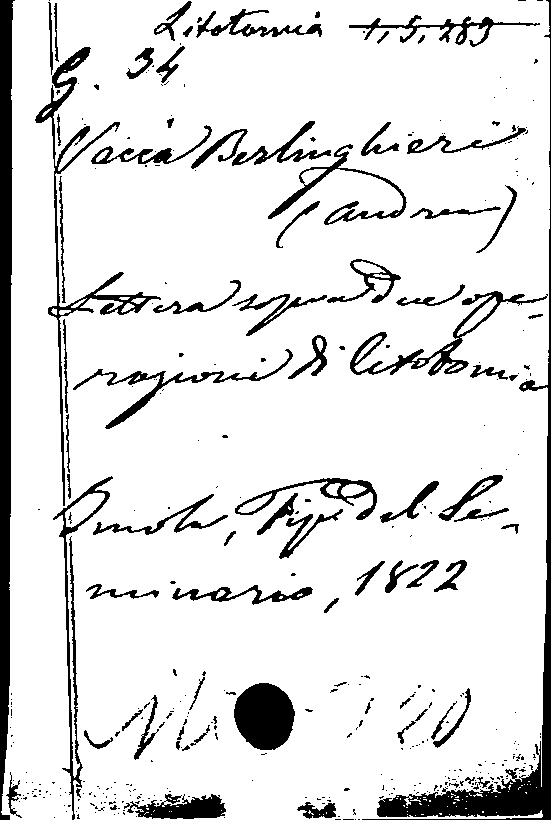 Litotomia 1, 5, 283
G. 34
Vaccà Berlinghieri
(Andrea)
Lettera sopra due ope-
razioni di litotomia
Imola, Tip. del Se-
minario, 1822